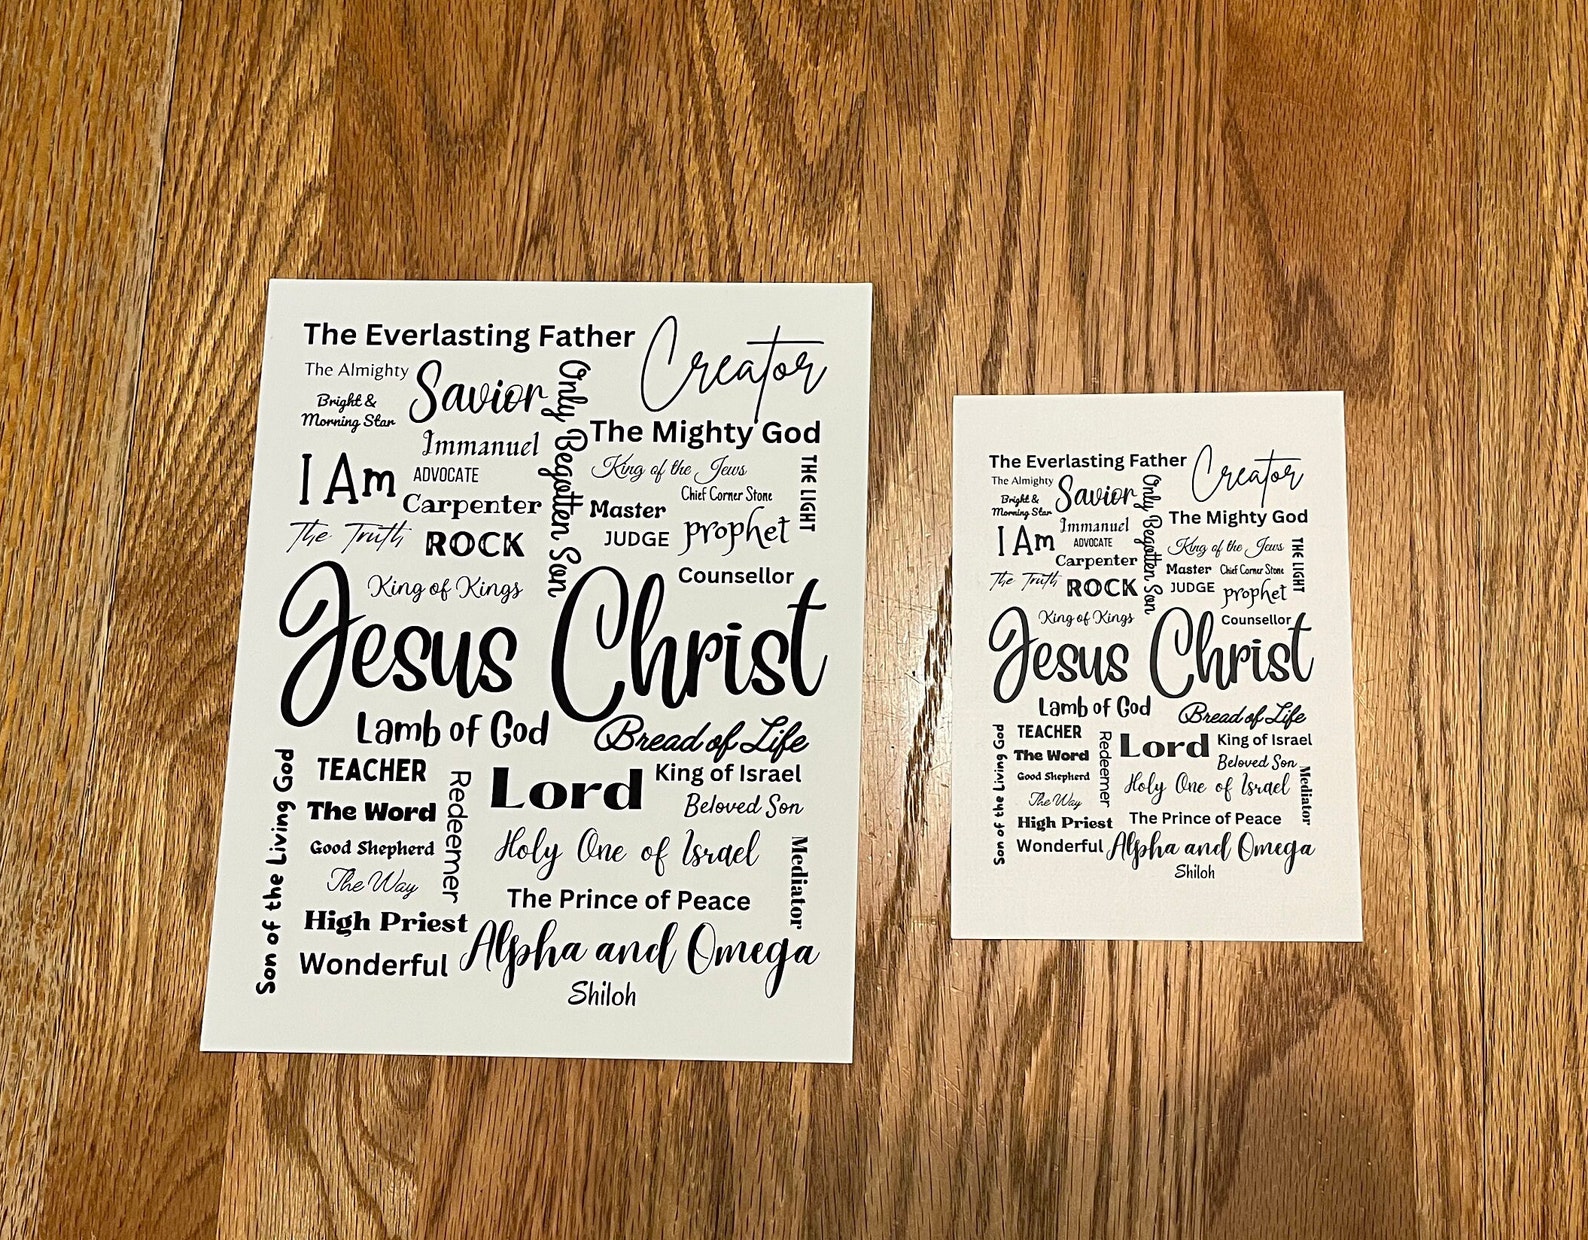 The Everlasting Father
Creator
The Almighty
Savior
Only Begotten Son
Bright &
Morning Star
Immanuel
The Mighty God
I Am
ADVOCATE
King of the Jews
THE LIGHT
Carpenter
Chief Corner Stone
Master
The Truth
ROCK
JUDGE
prophet
King of Kings
Counsellor
Jesus Christ
Lamb of God
Bread of Life
Son of the Living God
TEACHER
Redeemer
Lord
King of Israel
The Word
Beloved Son
Good Shepherd
Holy One of Israel
Mediator
The Way
The Prince of Peace
High Priest
Wonderful
Alpha and Omega
Shiloh
The Everlasting Father
Creator
The Almighty
Savior
Only Begotten Son
Bright &
Morning Star
Immanuel
The Mighty God
I Am
ADVOCATE
King of the Jews
THE LIGHT
Carpenter
Master
Chief Corner Stone
The Truth
ROCK
JUDGE
prophet
King of Kings
Counsellor
Jesus Christ
Lamb of God
Bread of Life
Son of the Living God
TEACHER
Redeemer
Lord
King of Israel
The Word
Beloved Son
Good Shepherd
Holy One of Israel
Mediator
The Way
High Priest
The Prince of Peace
Wonderful
Alpha and Omega
Shiloh